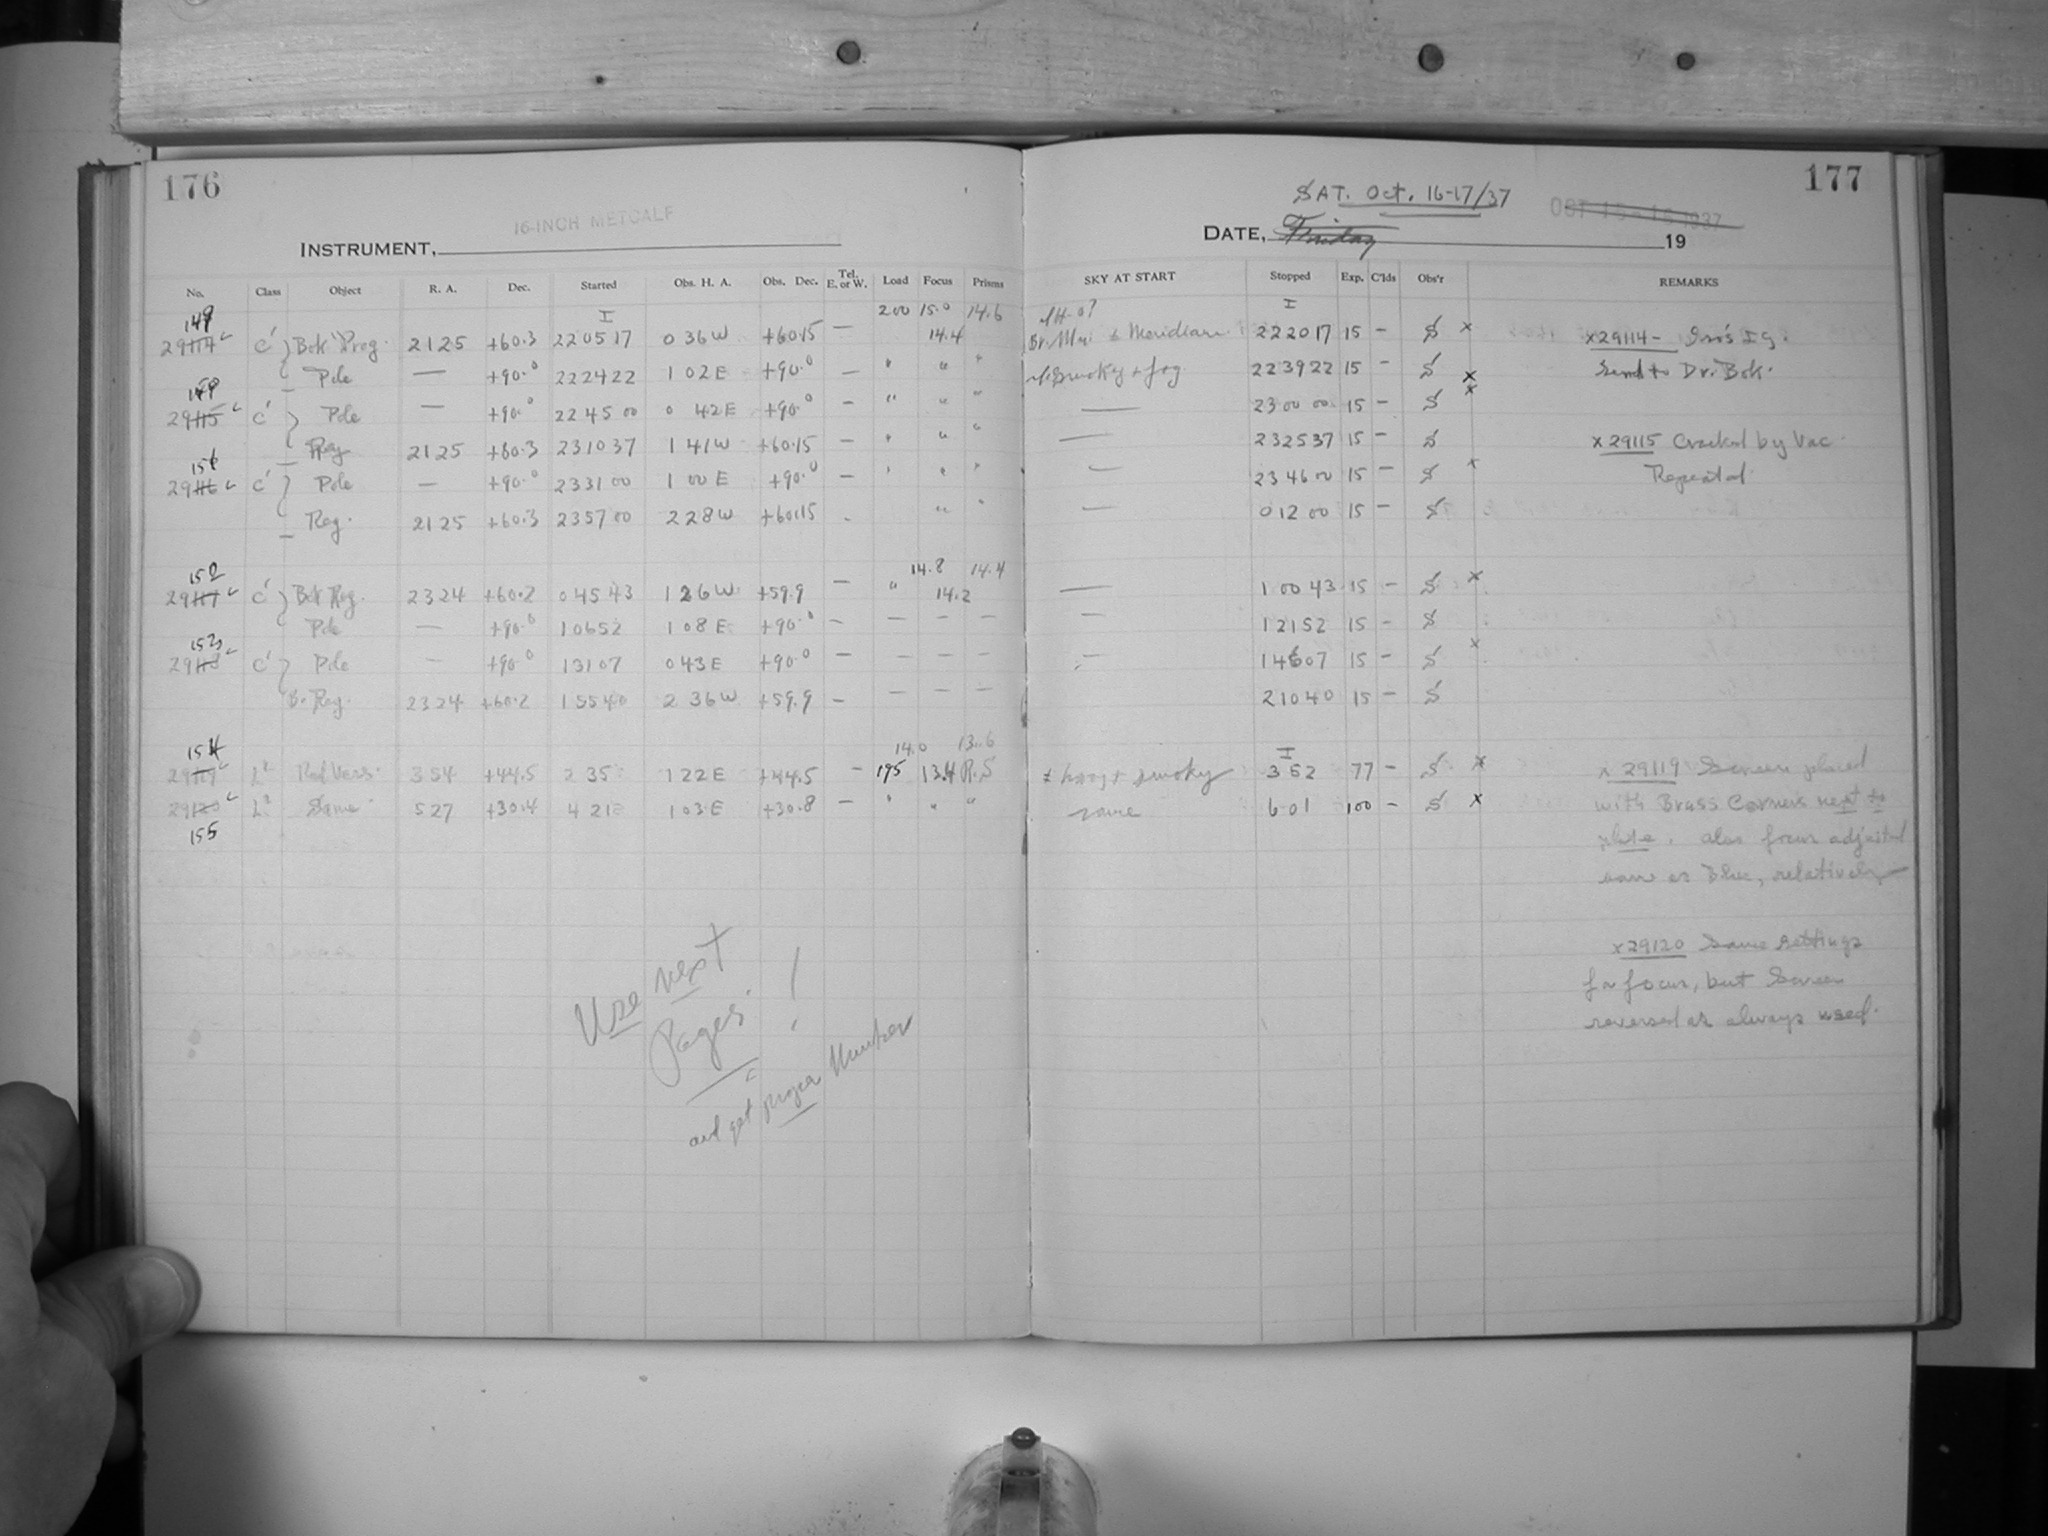 176
177
16-INCH METCALF
SAT. Oct. 16-17/37
INSTRUMENT,
DATE, Friday 19
No. Class Object R. A. Dec. Started Obs. H. A. Obs. Dec. Tel. E. or W. Load Focus Prisms SKY AT START Stopped Exp. C'lds Obs'r REMARKS
149 I 200 15.0 14.6 I
29114 C' Bok Prog. 2125 +60.3 220517 036W +60.15 — 14.4 222017 15 - S x x29114-
Pole — +90.0 222422 102E +90.0 — " " " smoky + fog 223922 15 - S x Send to Dr. Bok.
29115 C' Pole — +90.0 224500 0 42E +90.0 — " " " — 230000 15 - S x
Reg 2125 +60.3 231037 141W +60.15 — " " " — 232537 15 - S x29115 Cracked by Vac.
151
29116 C' Pole — +90.0 233100 1 00E +90.0 — " " " — 234600 15 - S x Repeated
Reg. 2125 +60.3 235700 228W +60.15 - " " — 01200 15 - S
152 14.8 14.4
29117 C' Bok Reg. 2324 +60.2 04543 126W +59.9 — " 14.2 — 10043 15 - S x
Pole — +90.0 10652 108E +90.0 — — — — — 12152 15 - S
153
29118 C' Pole — +90.0 13107 043E +90.0 — — — — — 14607 15 - S x
B. Reg. 2324 +60.2 15540 236W +59.9 — — — — 21040 15 - S
154 14.0 13.6 I
29119 L2 Red Vars. 354 +44.5 235 122E +44.5 — 195 13.4 R.S hazy + smoky 352 77 - S x x 29119 Screen placed
29120 L2 Same 527 +30.4 421 103E +30.8 — " " " same 601 100 - S x with Brass Corners next to
155
plate. also focus adjusted
same as Blue, relatively
x29120 Same settings
for focus, but Screen
reversed as always used.
Use next
Pages. !
and get proper Number